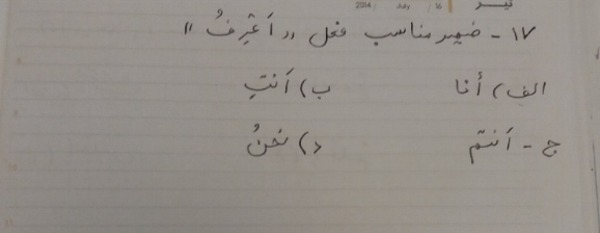 تیر 2014 July 16
۱۷ - ضمیر مناسب فعل «أَعْرِفُ»
الف) أنا ب) أَنتِ
ج - أَنتم د) نحنُ